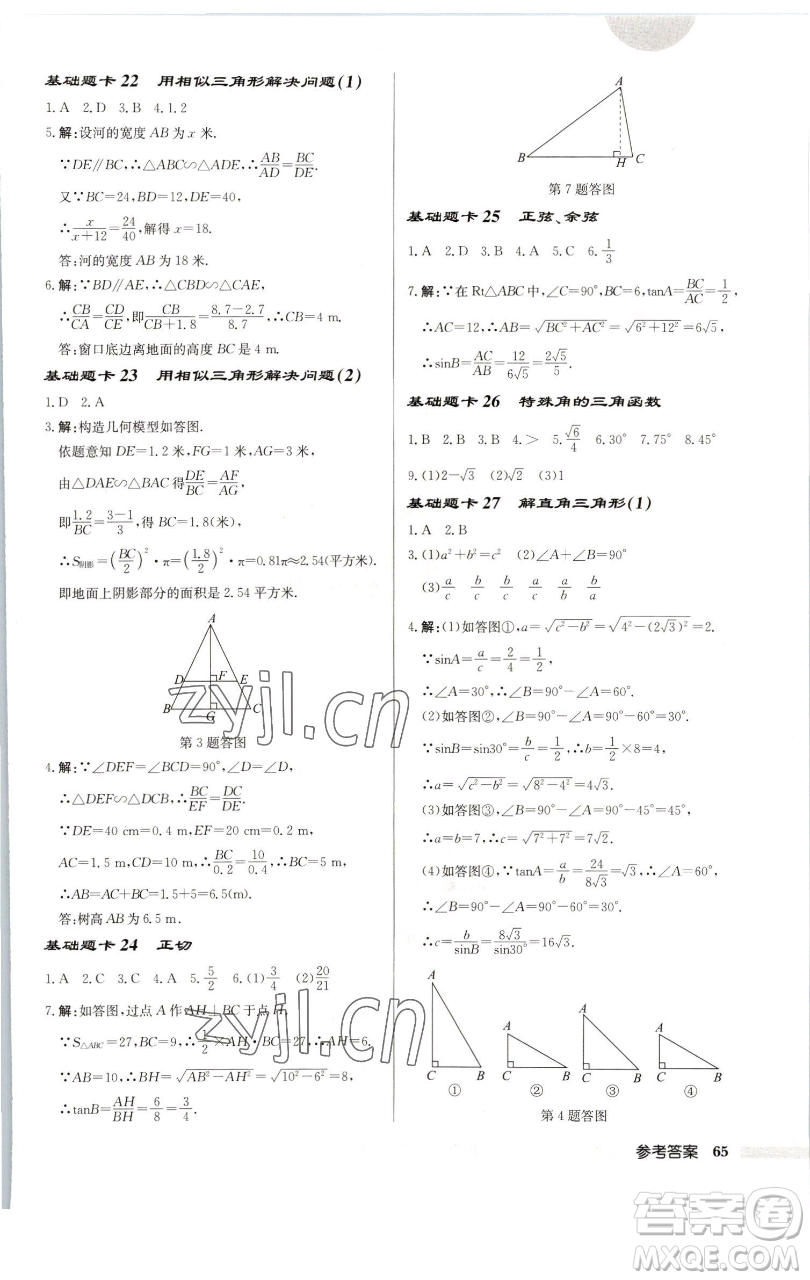 基础题卡 22 用相似三角形解决问题(1)
1.A 2.D 3.B 4.1.2
5.解:设河的宽度 AB 为 x 米.
∵DE∥BC,∴△ABC∽△ADE,∴AB/AD=BC/DE.
又∵BC=24,BD=12,DE=40,
∴x/(x+12)=24/40,解得 x=18.
答:河的宽度 AB 为 18 米.
6.解:∵BD∥AE,∴△CBD∽△CAE,
∴CB/CA=CD/CE,即CB/(CB+1.8)=(8.7-2.7)/8.7,∴CB=4 m.
答:窗口底边离地面的高度 BC 是 4 m.
基础题卡 23 用相似三角形解决问题(2)
1.D 2.A
3.解:构造几何模型如答图.
依题意知 DE=1.2 米,FG=1 米,AG=3 米,
由△DAE∽△BAC 得DE/BC=AF/AG,
即1.2/BC=(3-1)/3,得 BC=1.8(米),
∴S阴影=(BC/2)²·π=(1.8/2)²·π=0.81π≈2.54(平方米).
即地面上阴影部分的面积是 2.54 平方米.
A
D F E
B G C
第 3 题答图
4.解:∵∠DEF=∠BCD=90°,∠D=∠D,
∴△DEF∽△DCB,∴BC/EF=DC/DE.
∵DE=40 cm=0.4 m,EF=20 cm=0.2 m,
AC=1.5 m,CD=10 m,∴BC/0.2=10/0.4,∴BC=5 m,
∴AB=AC+BC=1.5+5=6.5(m).
答:树高 AB 为 6.5 m.
基础题卡 24 正切
1.A 2.C 3.C 4.A 5.5/2 6.(1)3/4 (2)20/21
7.解:如答图,过点 A 作 AH⊥BC 于点 H.
∵S△ABC=27,BC=9,∴1/2×AH·BC=27,∴AH=6.
∵AB=10,∴BH=√(AB²-AH²)=√(10²-6²)=8,
∴tanB=AH/BH=6/8=3/4.
A
B H C
第 7 题答图
基础题卡 25 正弦、余弦
1.A 2.D 3.C 4.A 5.C 6.1/3
7.解:∵在 Rt△ABC 中,∠C=90°,BC=6,tanA=BC/AC=1/2,
∴AC=12,∴AB=√(BC²+AC²)=√(6²+12²)=6√5,
∴sinB=AC/AB=12/(6√5)=2√5/5.
基础题卡 26 特殊角的三角函数
1.B 2.B 3.B 4.> 5.√6/4 6.30° 7.75° 8.45°
9.(1)2-√3 (2)√2 (3)1
基础题卡 27 解直角三角形(1)
1.A 2.B
3.(1)a²+b²=c² (2)∠A+∠B=90°
(3)a/c b/c b/c a/c a/b b/a
4.解:(1)如答图①,a=√(c²-b²)=√(4²-(2√3)²)=2.
∵sinA=a/c=2/4=1/2,
∴∠A=30°,∴∠B=90°-∠A=90°-30°=60°.
(2)如答图②,∠B=90°-∠A=90°-60°=30°.
∵sinB=sin30°=b/c=1/2,∴b=1/2c=1/2×8=4,
∴a=√(c²-b²)=√(8²-4²)=4√3.
(3)如答图③,∠B=90°-∠A=90°-45°=45°.
∴a=b=7,∴c=√(7²+7²)=7√2.
(4)如答图④,∵tanA=a/b=24/(8√3)=√3,∴∠A=60°.
∴∠B=90°-∠A=90°-60°=30°.
∴c=b/sinB=8√3/sin30°=16√3.
A A A A
C B C B C B C B
① ② ③ ④
第 4 题答图
参考答案 65
zyjl.cn
zyjl.cn
答案卷
MXQE.COM